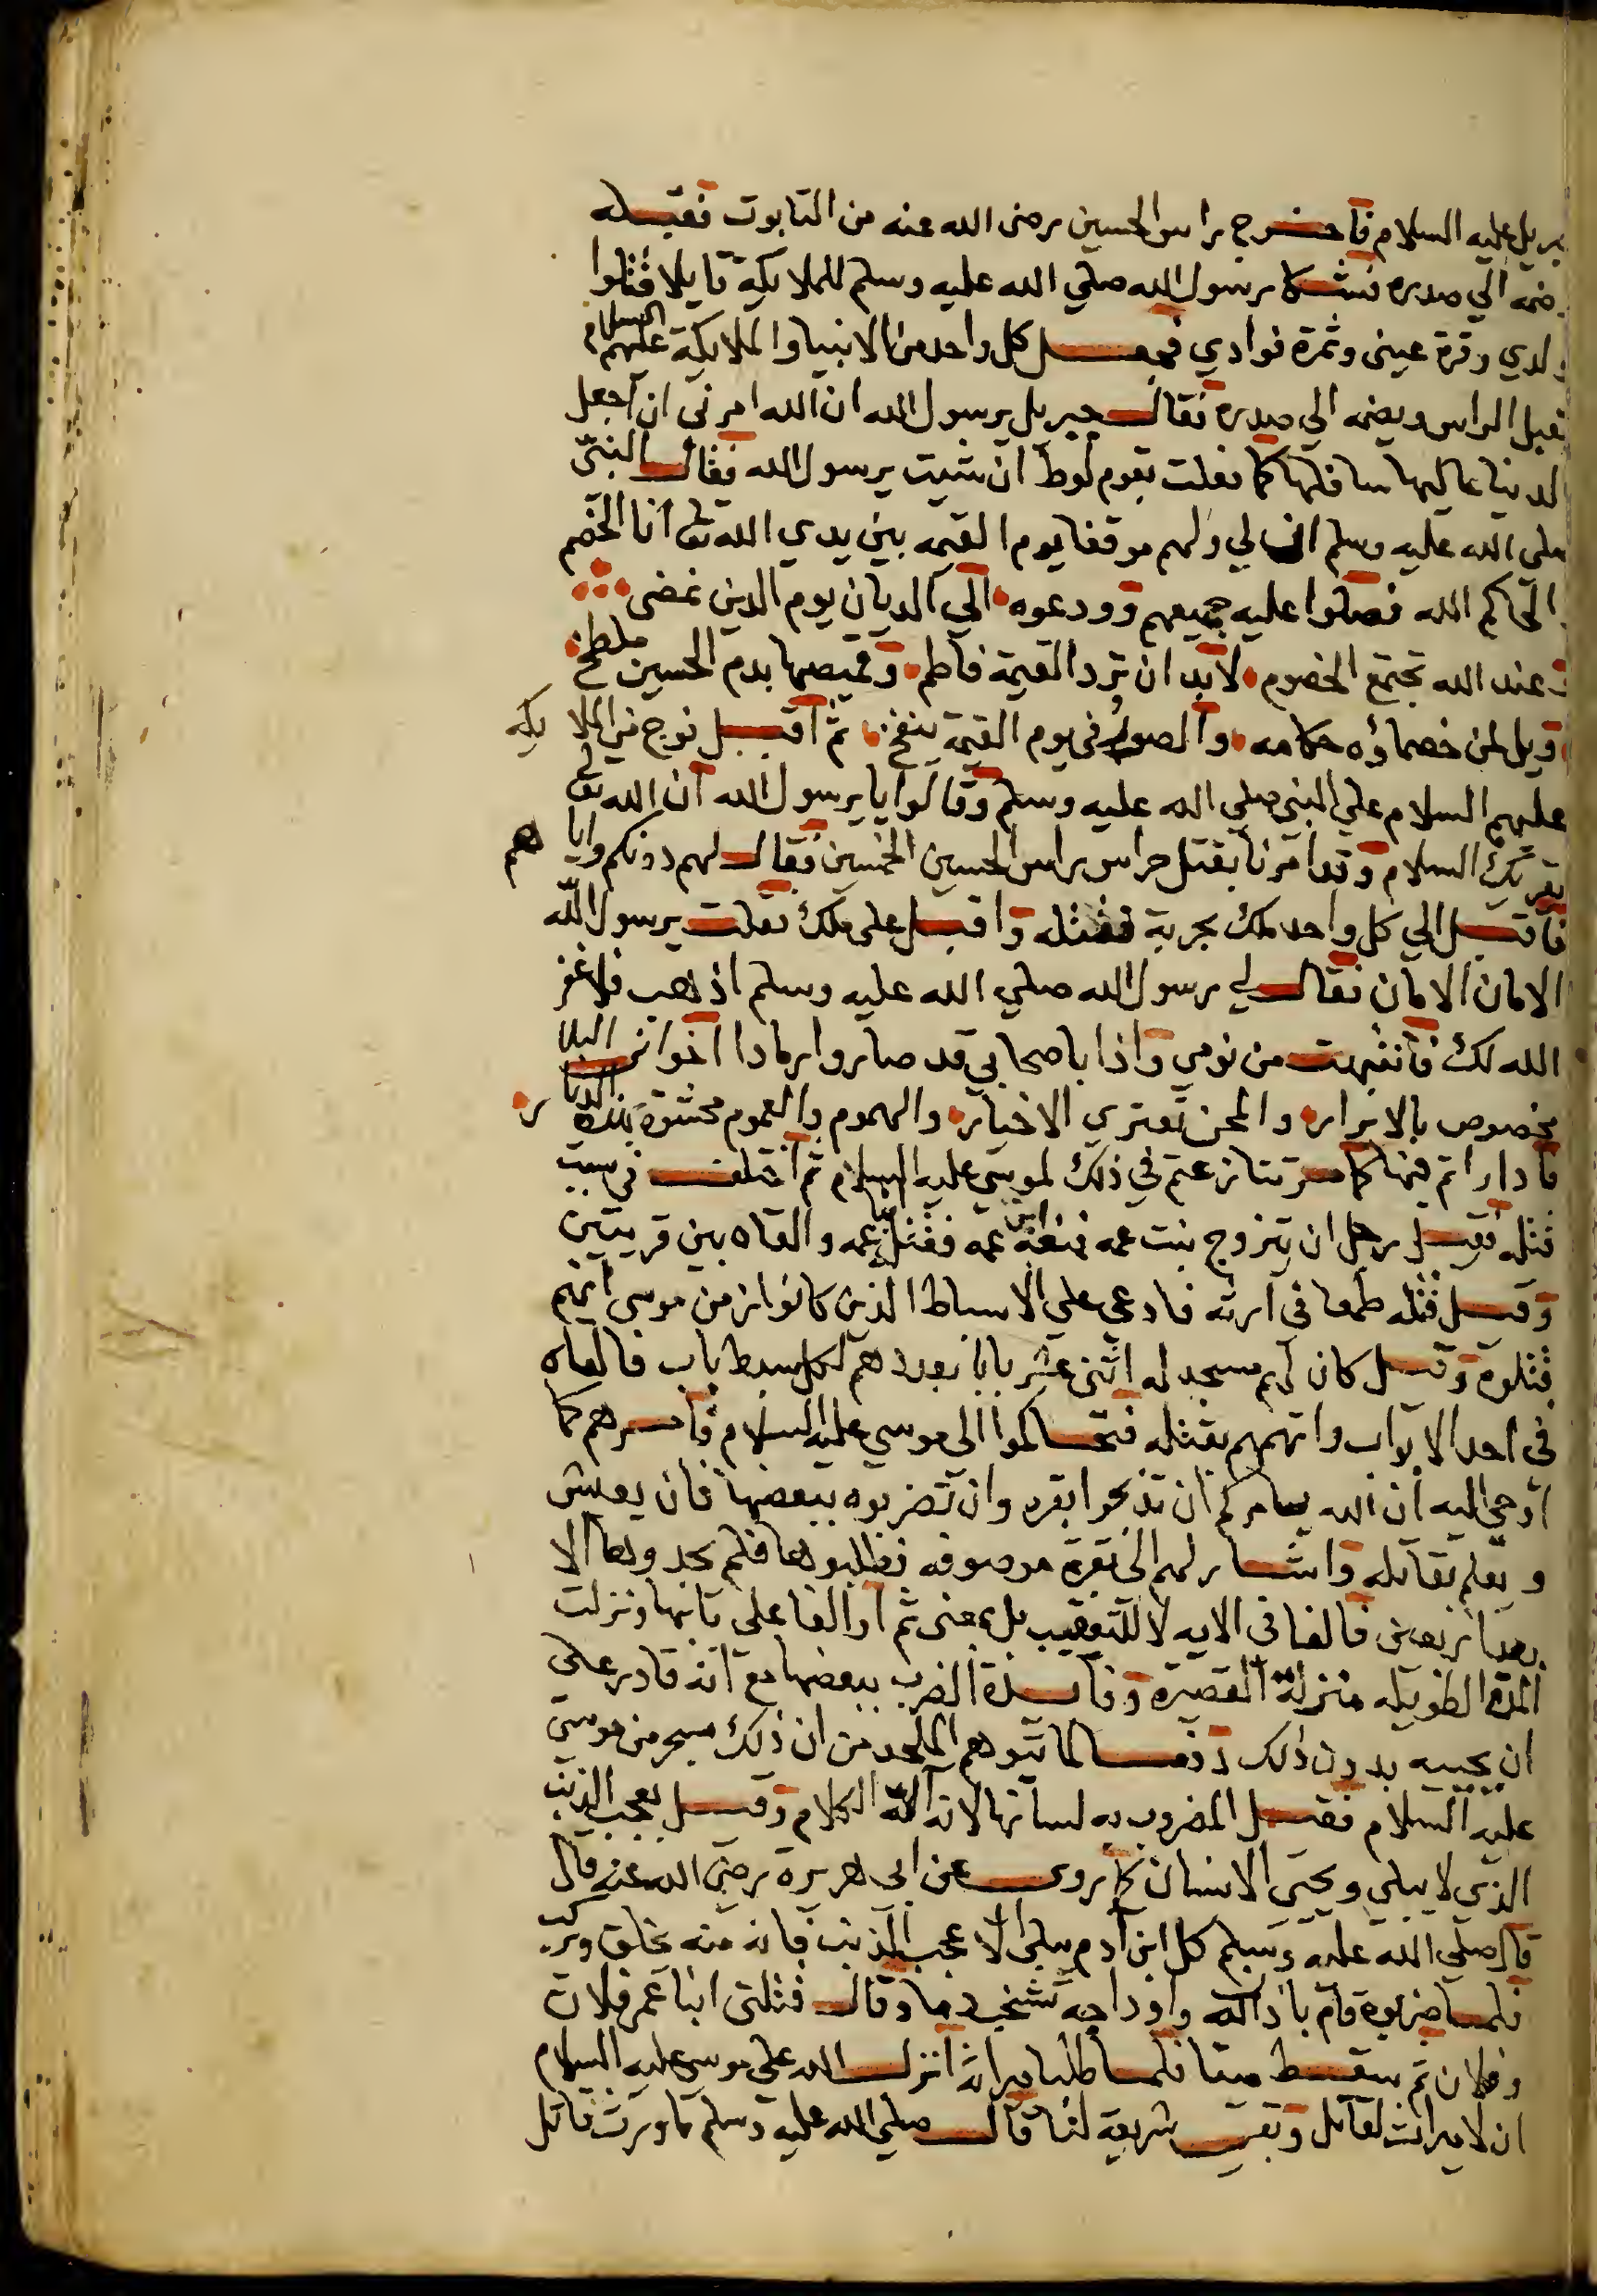 جبريل عليه السلام فاخرج راس الحسين رضى الله عنه من التابوت فقبله
وضمه الي صدره فشكا رسول الله صلي الله عليه وسلم للملايكة قايلا قتلوا
ولدي وقرة عينى وثمرة فوادي فجعل كل واحد من الانبيا والملايكة عليهم السلام
يقبل الراس ويضمه الي صدره فقال جبريل يرسول الله ان الله امرنى ان اجعل
الدنيا عاليها سافلها كما فعلت بقوم لوط ان شيت يرسول الله فقال النبي
صلى الله عليه وسلم ان لي ولهم موقفا يوم القيمه بين يدي الله تعا انا الخصم
والحاكم الله فصلوا عليه جميعهم وودعوه الي الديان يوم الدين نمضى
وعند الله تجتمع الخصوم لا بد ان ترد القيمة فاطم وقميصها بدم الحسين ملطخ
ويل لمن خصماؤه حكامه والصور فى يوم القيمة ينفخ ثم اقبل فوج من الملايكه
عليهم السلام علي النبي صلي الله عليه وسلم وقالوا يا يرسول الله ان الله تعالى
يقريك السلام وقد امرنا بقتل حراس راس الحسين الخمسين فقال لهم دونكم واياهم
فاقبل الي كل واحد ملك بحربة فقتله واقبل على ملك فقلت يرسول الله
الامان الامان فقال لي رسول الله صلي الله عليه وسلم اذهب فلا غفر
الله لك فانتبهت من نومي واذا باصحابي قد صاروا رمادا اخوانى البلا
مخصوص بالابرار والمحن تعتري الاخيار والهموم والغموم محشوة بهذه الدار
فادارأتم فيها كما مر تنازعتم في ذلك لموسى عليه السلام ثم اختلف فى سبب
قتله فقيل رجل ان يتزوج بنت عمه فمنعه عمه فقتل ابن عمه والقاه بين قريتين
وقيل قتله طمعا فى ارثه فادعى علي الاسباط الذين كانوا زمن موسى انهم
قتلوه وقيل كان لهم مسجد له اثنى عشر بابا بعددهم لكل سبط باب فالقاه
فى احد الابواب واتهمهم بقتله فتحاكموا الى موسى عليه السلام فامرهم كما
اوحي اليه ان الله يامركم ان تذبحوا بقرة وان تضربوه ببعضها فان يعيش
ويعلم بقاتله واشار لهم الى بقرة موصوفه فطلبوها فلم يجدوها الا
بعد اربعين فالفا فى الايه لا للتعقيب بل بمعنى ثم او الفا على بابها ونزلت
المدة الطويله منزلة القصيرة وفايدة الضرب ببعضها مع انه قادر على
ان يحييه بدون ذلك دفعا لما يتوهم الملحد من ان ذلك سحر من موسى
عليه السلام فقيل المضروب به لسانها لانه آلة الكلام وقيل بعجب الذنب
الذي لا يبلي ويحيى الانسان كما روى عن ابى هريرة رضى الله عنه قال
قال صلي الله عليه وسلم كل ابن آدم يبلى الا عجب الذنب فانه منه يخلق ويركب
فلما ضربوه قام باذن الله واوداجه تشخب دما وقال قتلنى ابنا عم فلان
وفلان ثم سقط ميتا فلما طلبا ميراثه انزل الله على موسى عليه السلام
ان لا ميراث لقاتل وبقي شريعة لنا قال صلي الله عليه وسلم ما ورث قاتل